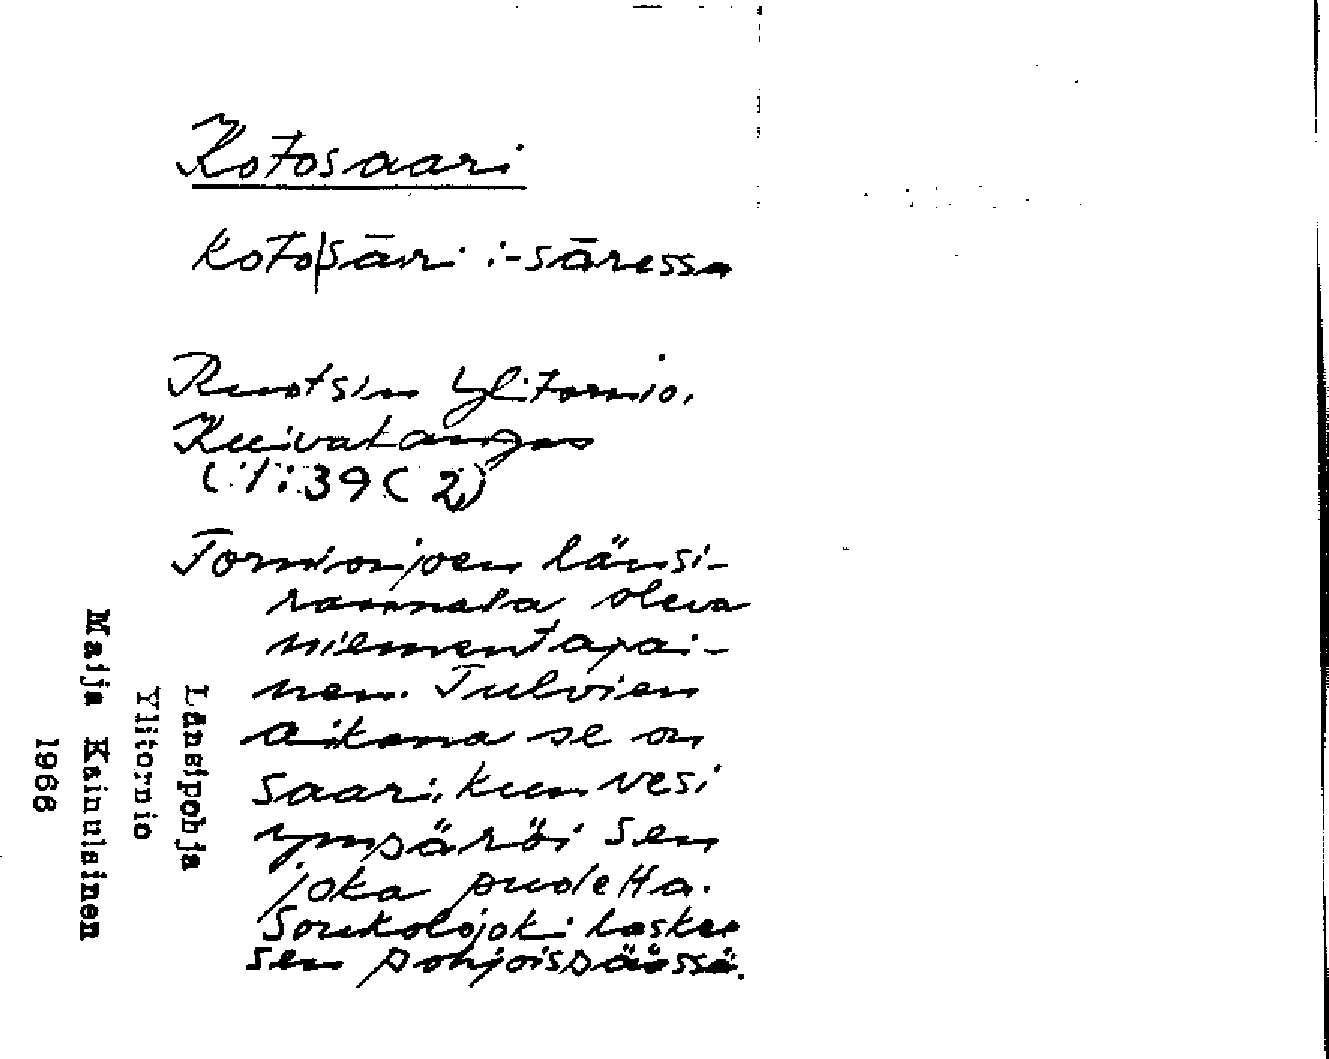 Kotosaari
koto|sāri : -sāressa
Ruotsin Ylitornio,
Kuivakangas
(:1:39 ( 2)
Tornionjoen länsi-
rannalla oleva
niementapai-
nen. Tulvien
aikana se on
saari, kun vesi
ympäröi sen
joka puolelta.
Soukolojoki laskee
sen pohjoispäässä.
Länsipohja
Ylitornio
Maija Kainulainen
1966